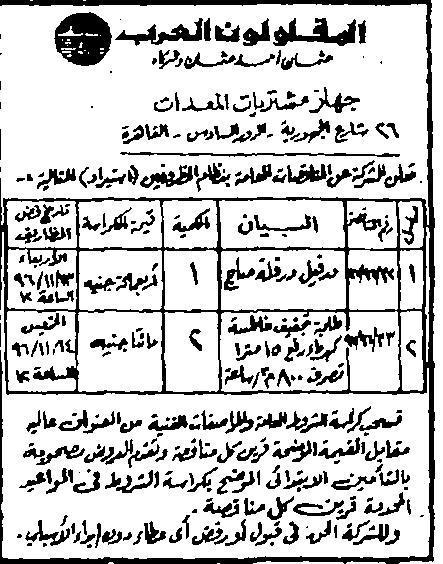 المقاولون العرب
عثمان أحمد عثمان وشركاه
جهاز مشتريات المعدات
٢٦ شارع الجمهورية - الدور السادس - القاهرة
تعلن الشركة عن المناقصات العامة بنظام المظروفين (استيراد) التالية :-
مسلسل | رقم المناقصة | البيان | الكمية | قيمة الكراسة | تاريخ فض المظاريف
١ | درفيل درفلة صاج | ١ | أربعمائة جنيه | الأربعاء ٩٦/١١/١٣ الساعة ١٢
٢ | طلمبة تجفيف غاطسة كهرباء رفع ١٥ مترا تصرف ٨٠٠ م٣/ساعة | ٢ | مائتا جنيه | الخميس ٩٦/١١/١٤ الساعة ١٢
تسحب كراسة الشروط العامة والمواصفات الفنية من العنوان عاليه
مقابل القيمة الموضحة قرين كل مناقصة وتقدم العروض مصحوبة
بالتأمين الابتدائى الموضح بكراسة الشروط فى المواعيد
المحددة قرين كل مناقصة .
وللشركة الحق فى قبول أو رفض أى عطاء دون إبداء الأسباب .